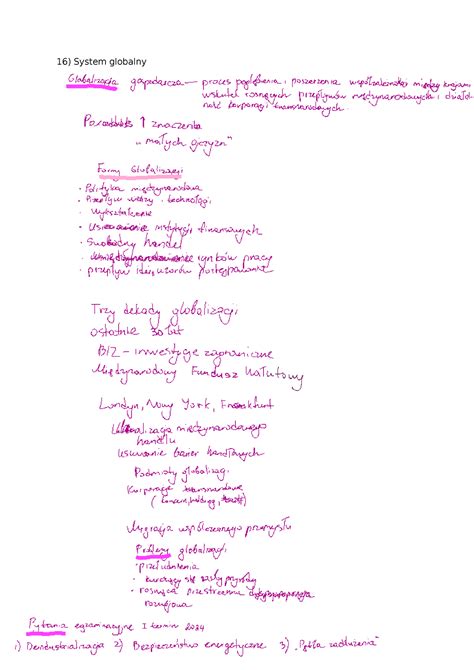 16) System globalny
Globalizacja gospodarcza — proces pogłębienia i poszerzenia współzależności między krajami
wskutek rosnących przepływów międzynarodowych i działal-
ność korporacji transnarodowych
↑ znaczenia
„małych ojczyzn"
Formy Globalizacji
• Polityka międzynarodowa
• Przepływ wiedzy i technologi
• Wykształcenie
• instytucji finansowych
• Swobodny handel
• rynków pracy
• przepływ idei, wzorów postępowania
Trzy dekady globalizacji
ostatnie 30 lat
BIZ – inwestycje zagraniczne
Międzynarodowy Fundusz Walutowy
Londyn, Nowy York, Frankfurt
Liberalizacja międzynarodowego
handlu
usuwanie barier handlowych
Podmioty globalizacji
Korporacje transnarodowe
(koncern, holding,
Migracja współczesnego przemysłu
Problemy globalizacji
• przeludnienie
• kurczące się zasoby przyrody
• rosnąca przestrzenna dysproporcja
rozwojowa
Pytania egzaminacyjne I termin 2024
1) Deindustrializacja 2) Bezpieczeństwo energetyczne 3) „Pętla zadłużenia"